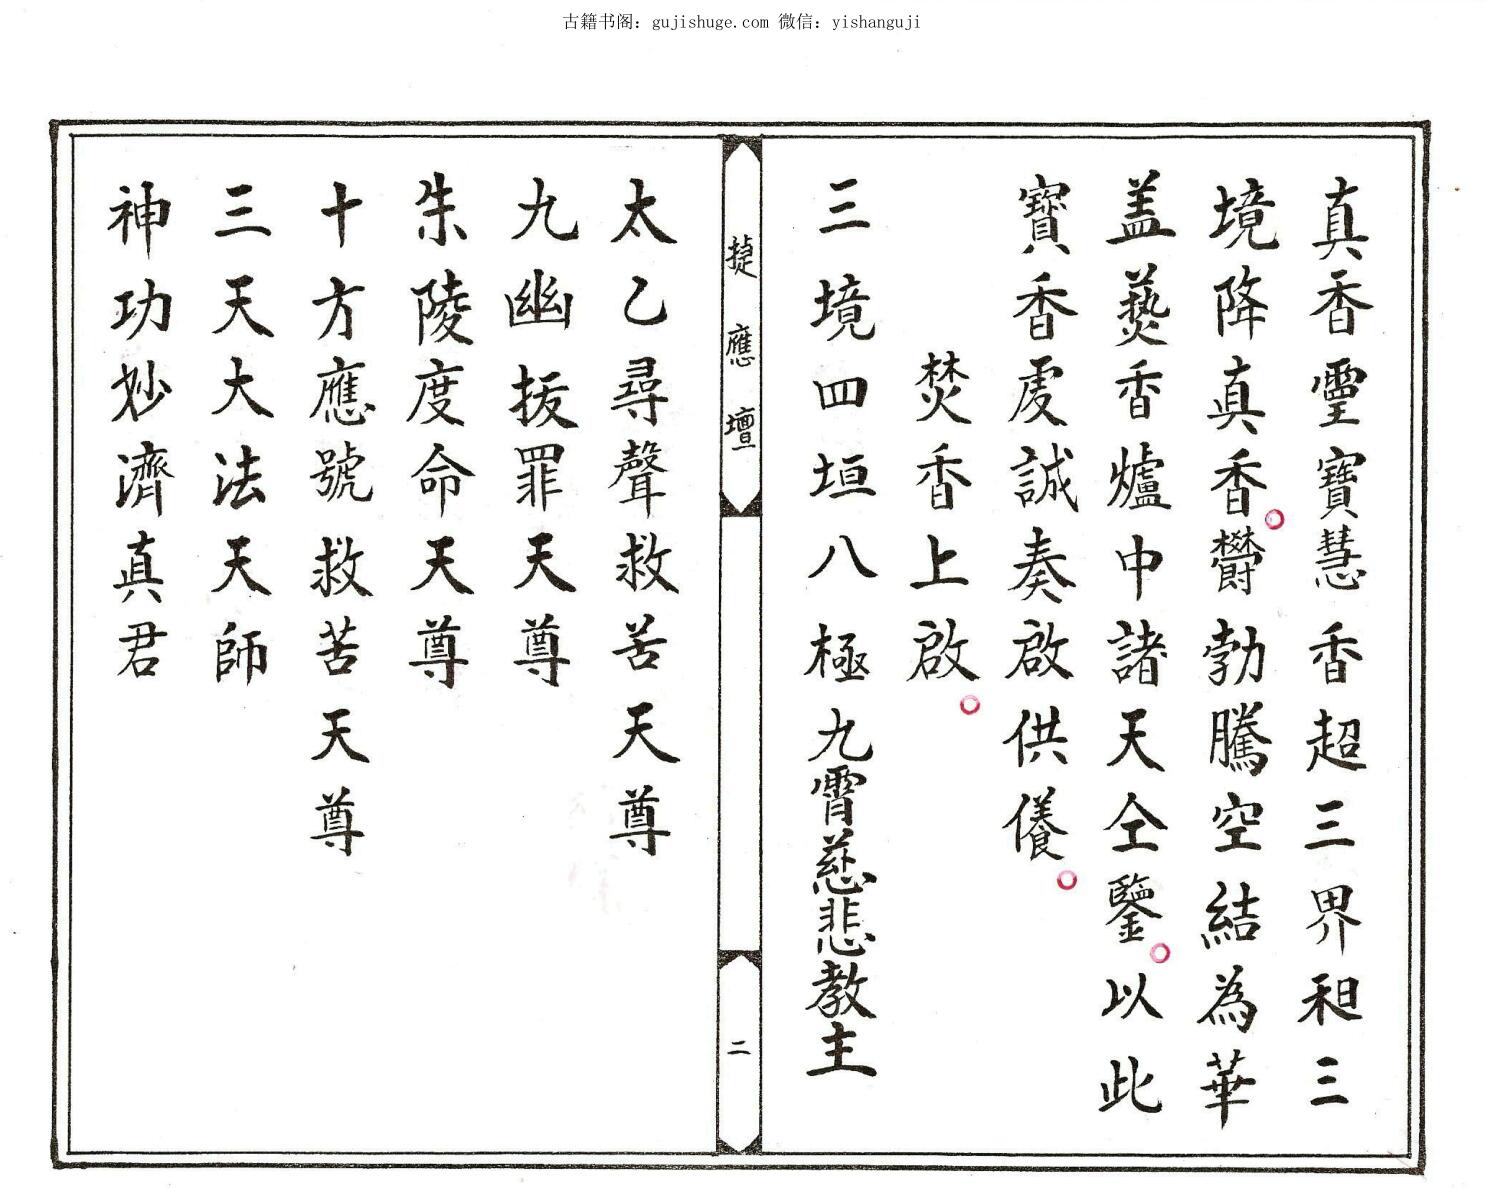 古籍书阁：gujishuge.com 微信：yishanguji
真香靈寶慧香超三界和三
境降真香欝勃騰空结為華
盖爇香爐中諸天仝鑒以此
寶香虔誠奏啟供養
焚香上啟
三境四垣八極九霄慈悲教主
捷應壇
二
太乙尋聲救苦天尊
九幽拔罪天尊
朱陵度命天尊
十方應號救苦天尊
三天大法天師
神功妙濟真君